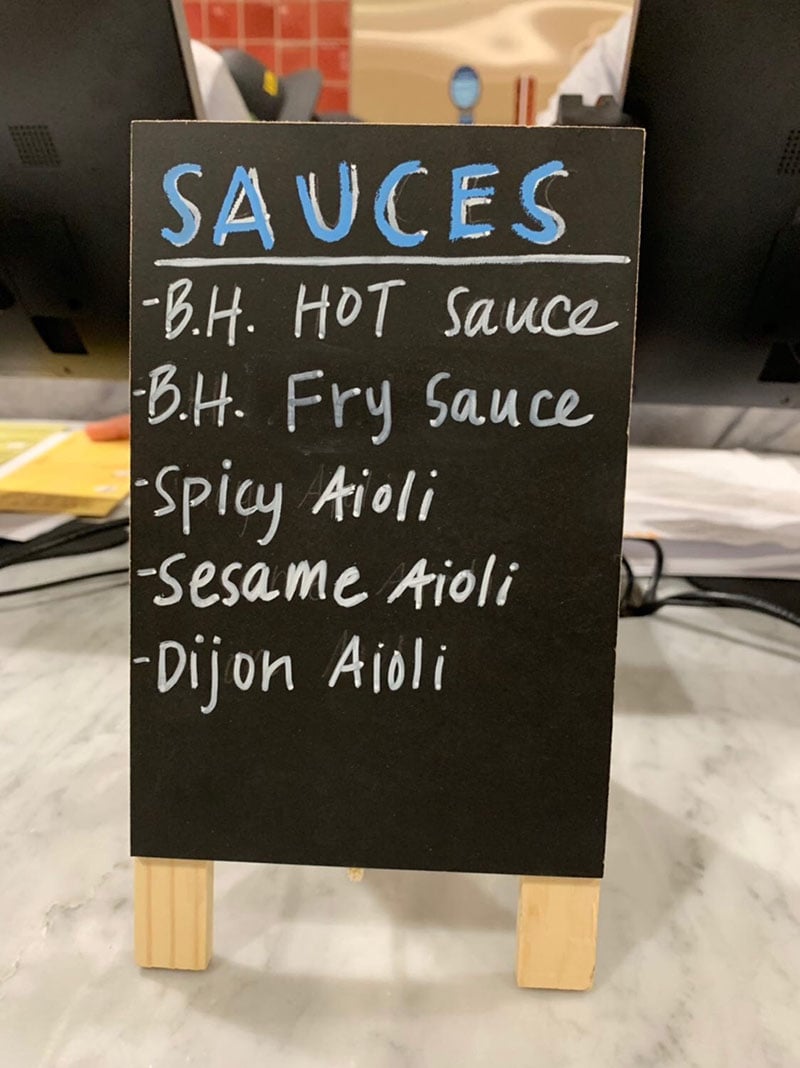 SAUCES
-B.H. HOT Sauce
-B.H. Fry Sauce
-Spicy Aioli
-Sesame Aioli
-Dijon Aioli